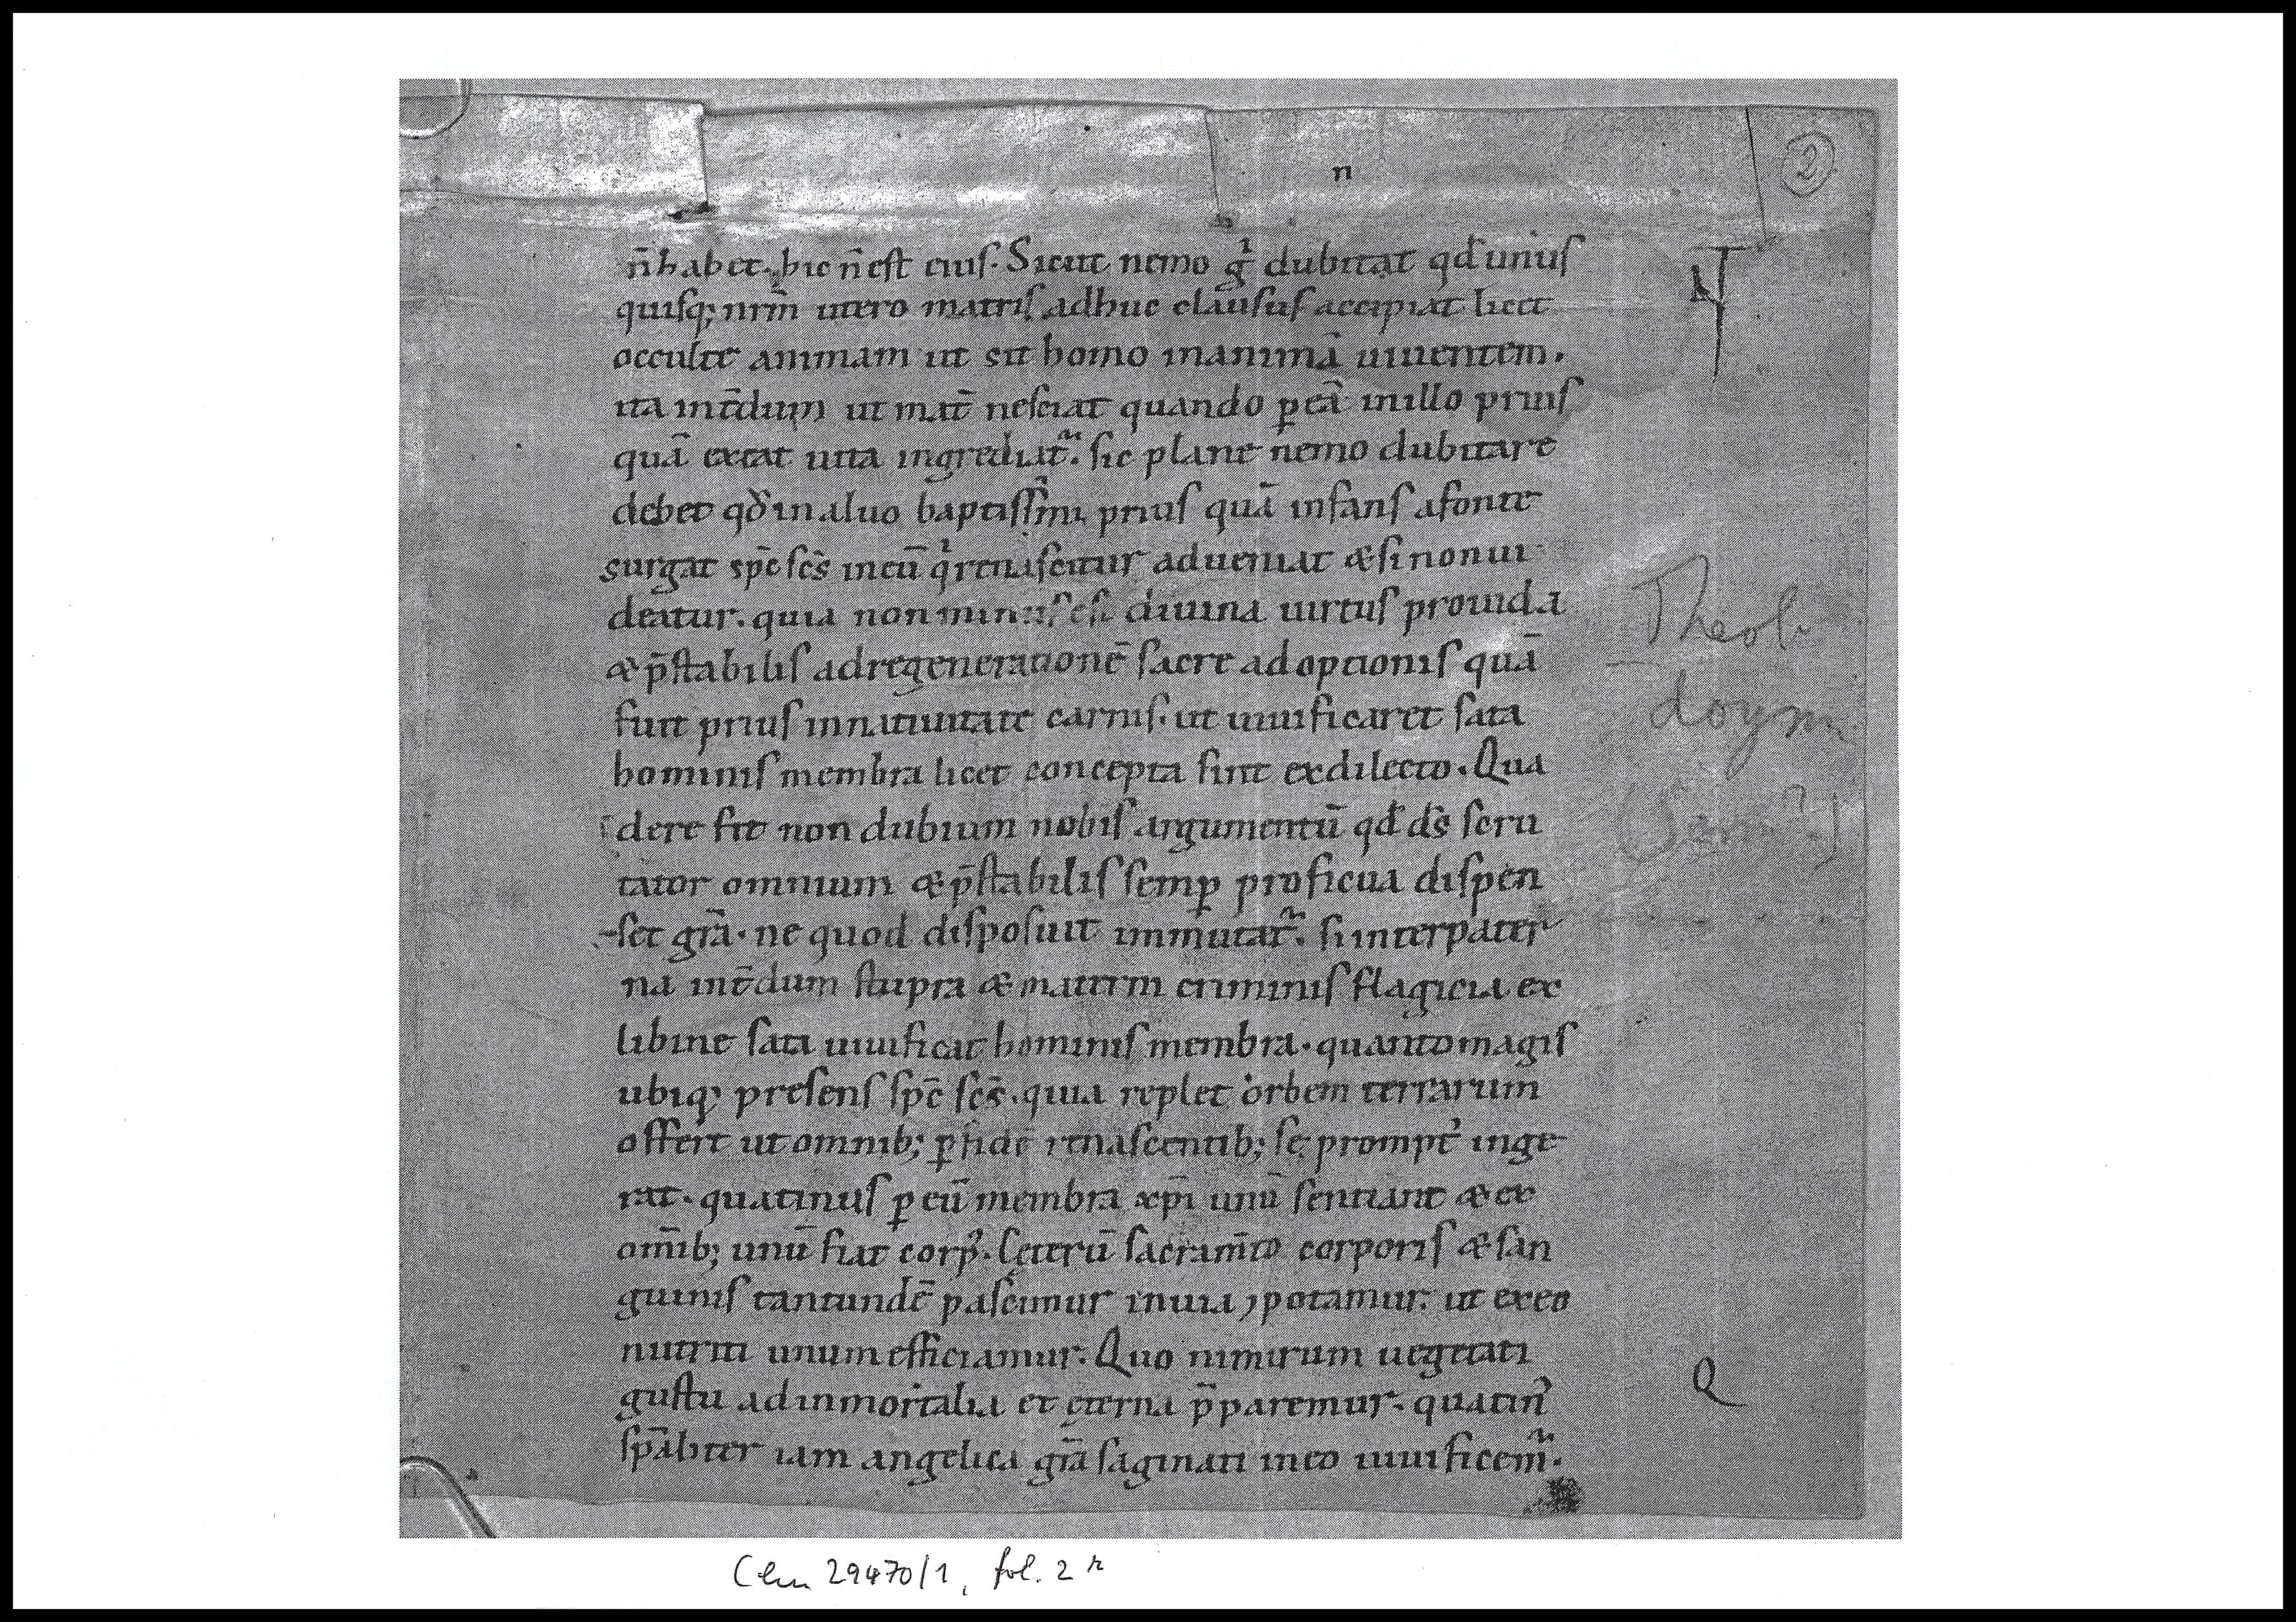 2
n
n̄ habet. hic n̄ est eius. Sicut nemo gͥ dubitat qđ unus
quisq; nr̄m utero matris adhuc clausus accipiat licet
occulte animam ut sit homo inanimā uiuentem.
ita int̄dum ut mat̄ nesciat quando ꝑ eā inillo prius
quā exeat uita ingrediat᷑. sic plane nemo dubitare
debet qđ in aluo baptissimi prius quā infans afonte
surgat sp̄c sc̄s incū qͥ renascitur adueniat & si non ui
deatur. quia non minus est diuina uirtus prouida
& p̄stabilis adregenerationē sacre adoptionis quā
fuit prius innatiuitate carnis. ut uiuificaret sata
hominis membra licet concepta sint exdilecto. Qua
dere fit non dubium nobis argumentū qđ d̄s scru
tator omnium & p̄stabilis semꝑ proficua dispen
set gr̄a. ne quod disposuit immutat᷑. si interpater
na int̄dum stupra & materni criminis flagicia ex
libine sati uiuificat hominis membra. quanto magis
ubiq; presens sp̄c sc̄s. quia replet orbem terrarum
offert ut omnib; ꝑ fidē renascentib; se prompt inge
rat. quatinus ꝑ eū membra xp̄i unū sentiant & ex
om̄ib; unū fiat corpꝰ. Ceterū sacram̄to corporis & san
guinis tantundē pascimur inuia ⁊ potamur. ut exeo
nutriti unum efficiamur. Quo nimirum uegetati
gustu adinmortalia et ęterna p̄paremur. quatinꝰ
sp̄aliter iam angelica gr̄a saginati ineo uiuificem᷑.
Q
Theol
Clm 29470/1, fol. 2r